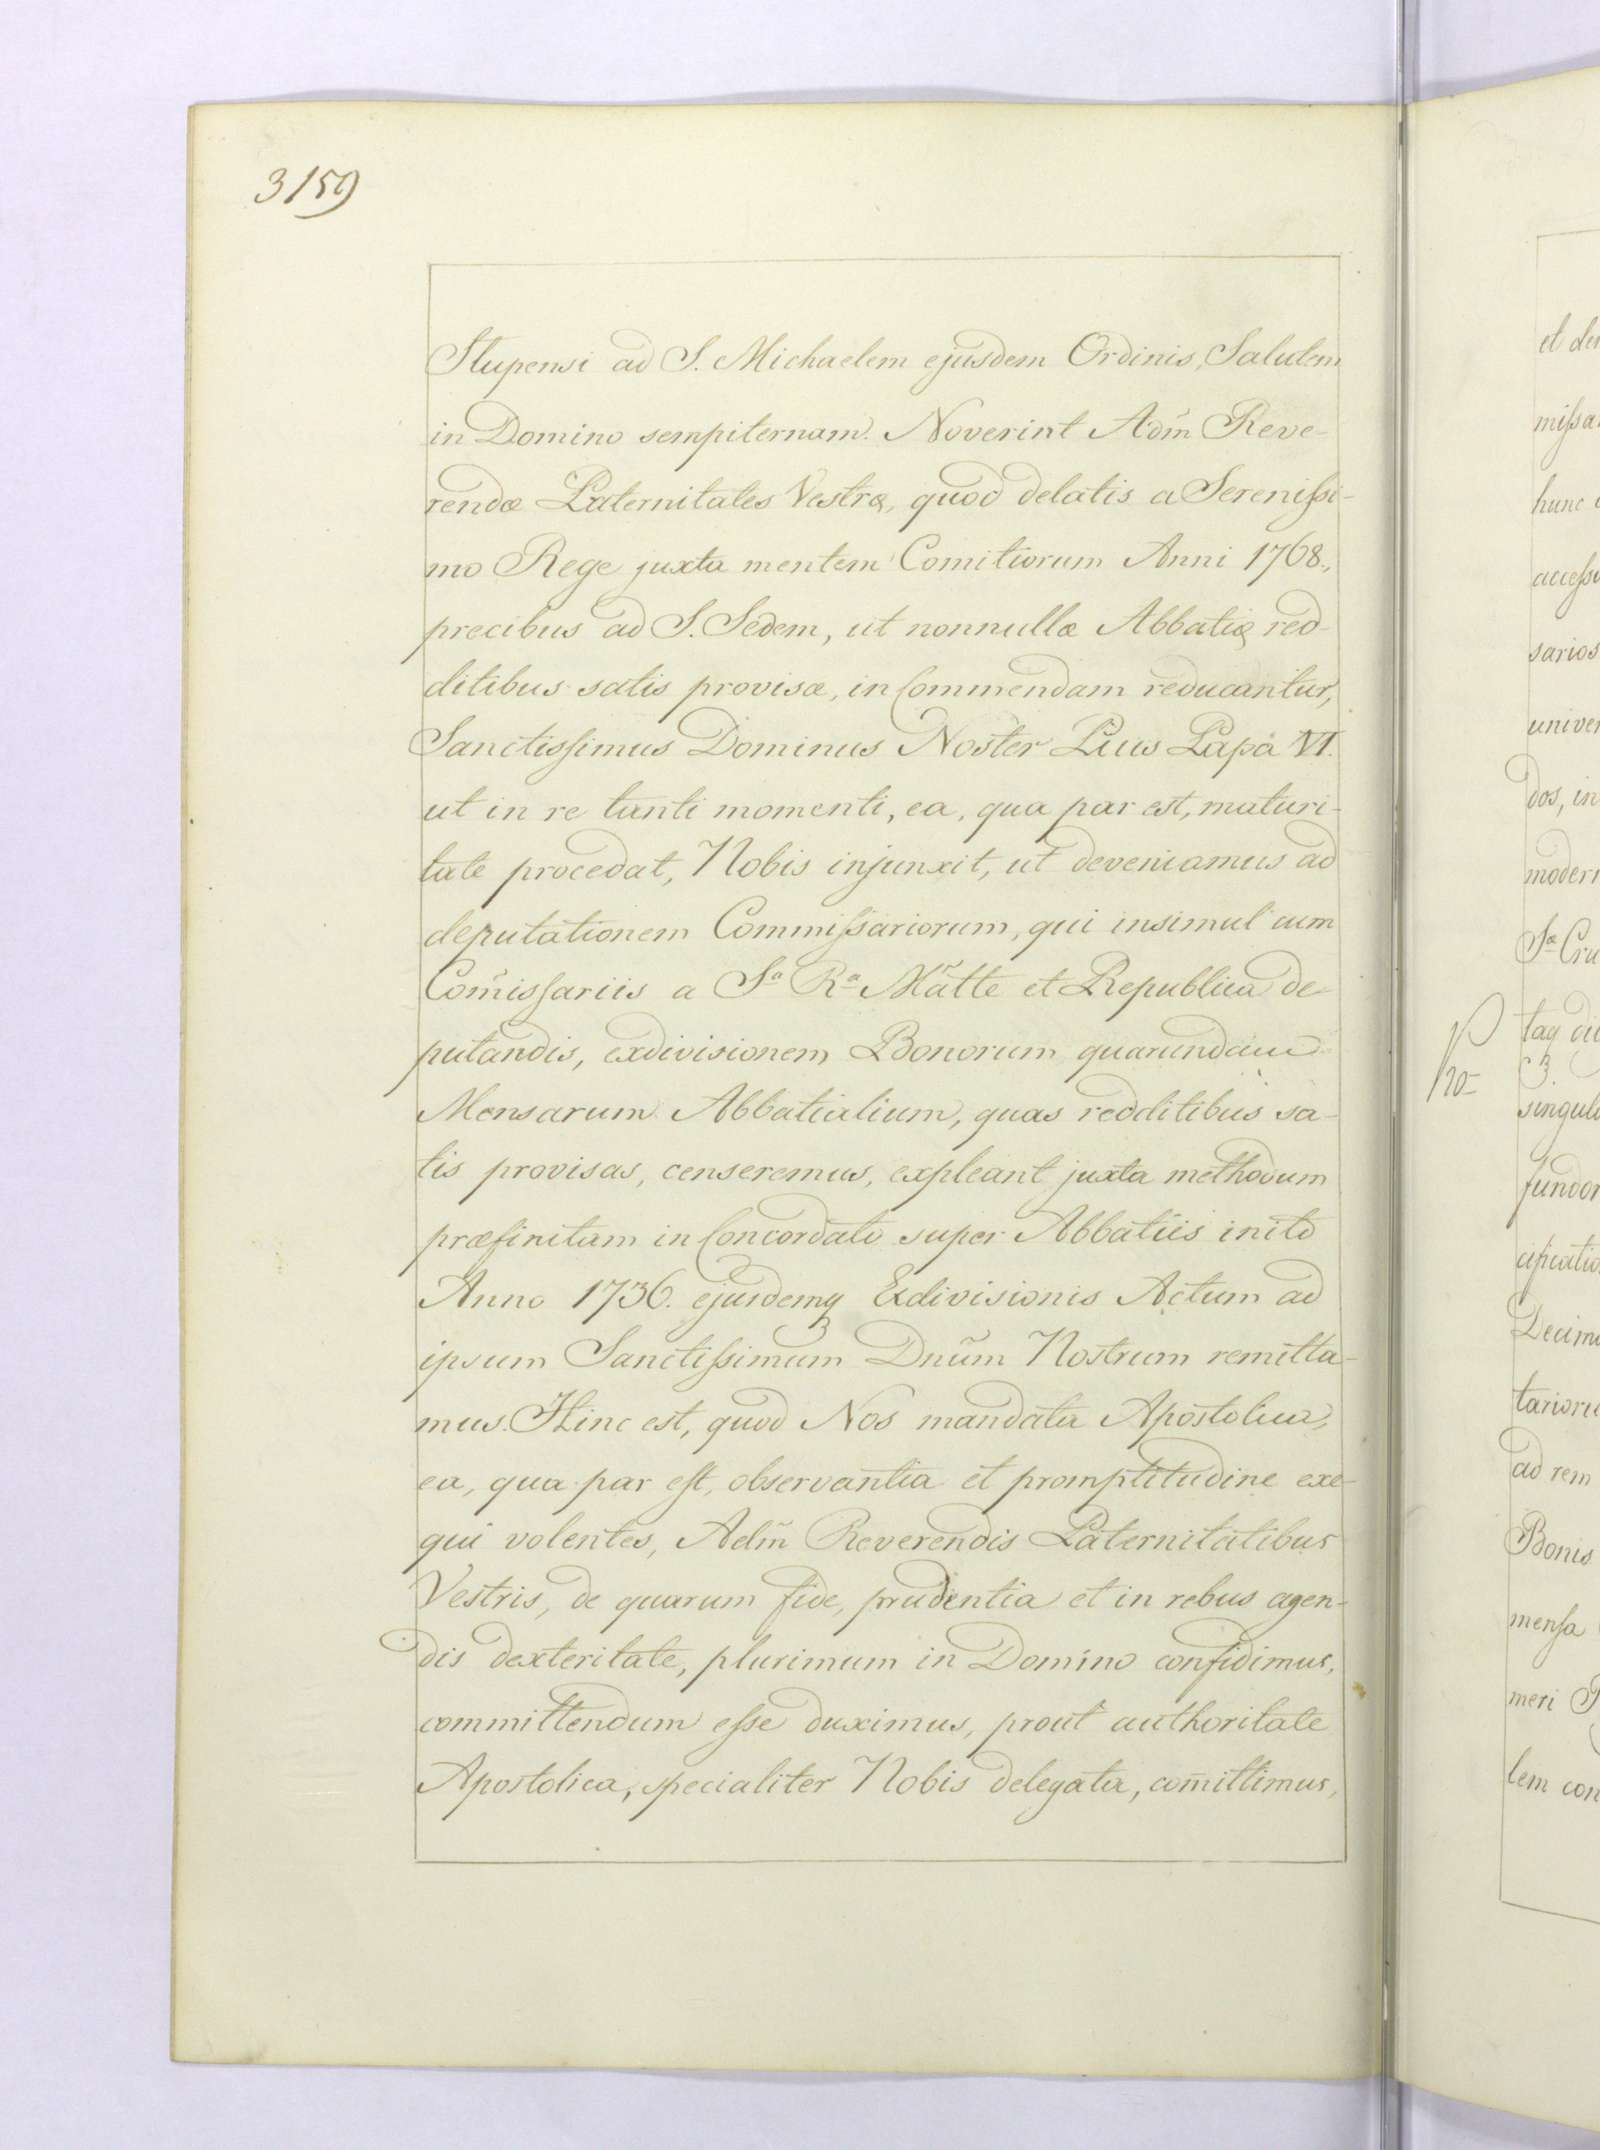 3159
Stupensi ad S. Michaelem ejusdem Ordinis, Salutem
in Domino sempiternam. Noverint Adm̃ Reve-
rendæ Paternitates Vestræ, quod delatis a Serenissi-
mo Rege juxta mentem Comitiorum Anni 1768.,
precibus ad S. Sedem, ut nonnullæ Abbatiæ red-
ditibus satis provisæ, in Commendam reducantur,
Sanctissimus Dominus Noster Pius Papa VI.
ut in re tanti momenti, ea, qua par est, maturi-
tate procedat, Nobis injunxit, ut deveniamus ad
deputationem Commissariorum, qui insimul cum
Com̃issariis a Sa Ra Mãtte et Republica de
putandis, exdivisionem Bonorum quarundam
Mensarum Abbatialium, quas redditibus sa-
tis provisas, censeremus, expleant juxta methodum
præfinitam in Concordato super Abbatiis inito
Anno 1736. ejusdemq Exdivisionis Actum ad
ipsum Sanctissimum Dnũm Nostrum remitta-
mus. Hinc est, quod Nos mandata Apostolica,
ea, qua par est, observantia et promptitudine exe-
qui volentes, Adm̃ Reverendis Paternitatibus
Vestris, de quarum fide, prudentia et in rebus agen-
dis dexteritate, plurimum in Domino confidimus,
committendum esse duximus, prout authoritate
Apostolica, specialiter Nobis delegata, com̃ittimus,
et de
missa
hunc
access
sarios
univer
dos, in
modern
Sæ Cru
taq di
singul
fundor
Decim
tarioru
ad rem
Bonis
mensa
meri
lem con